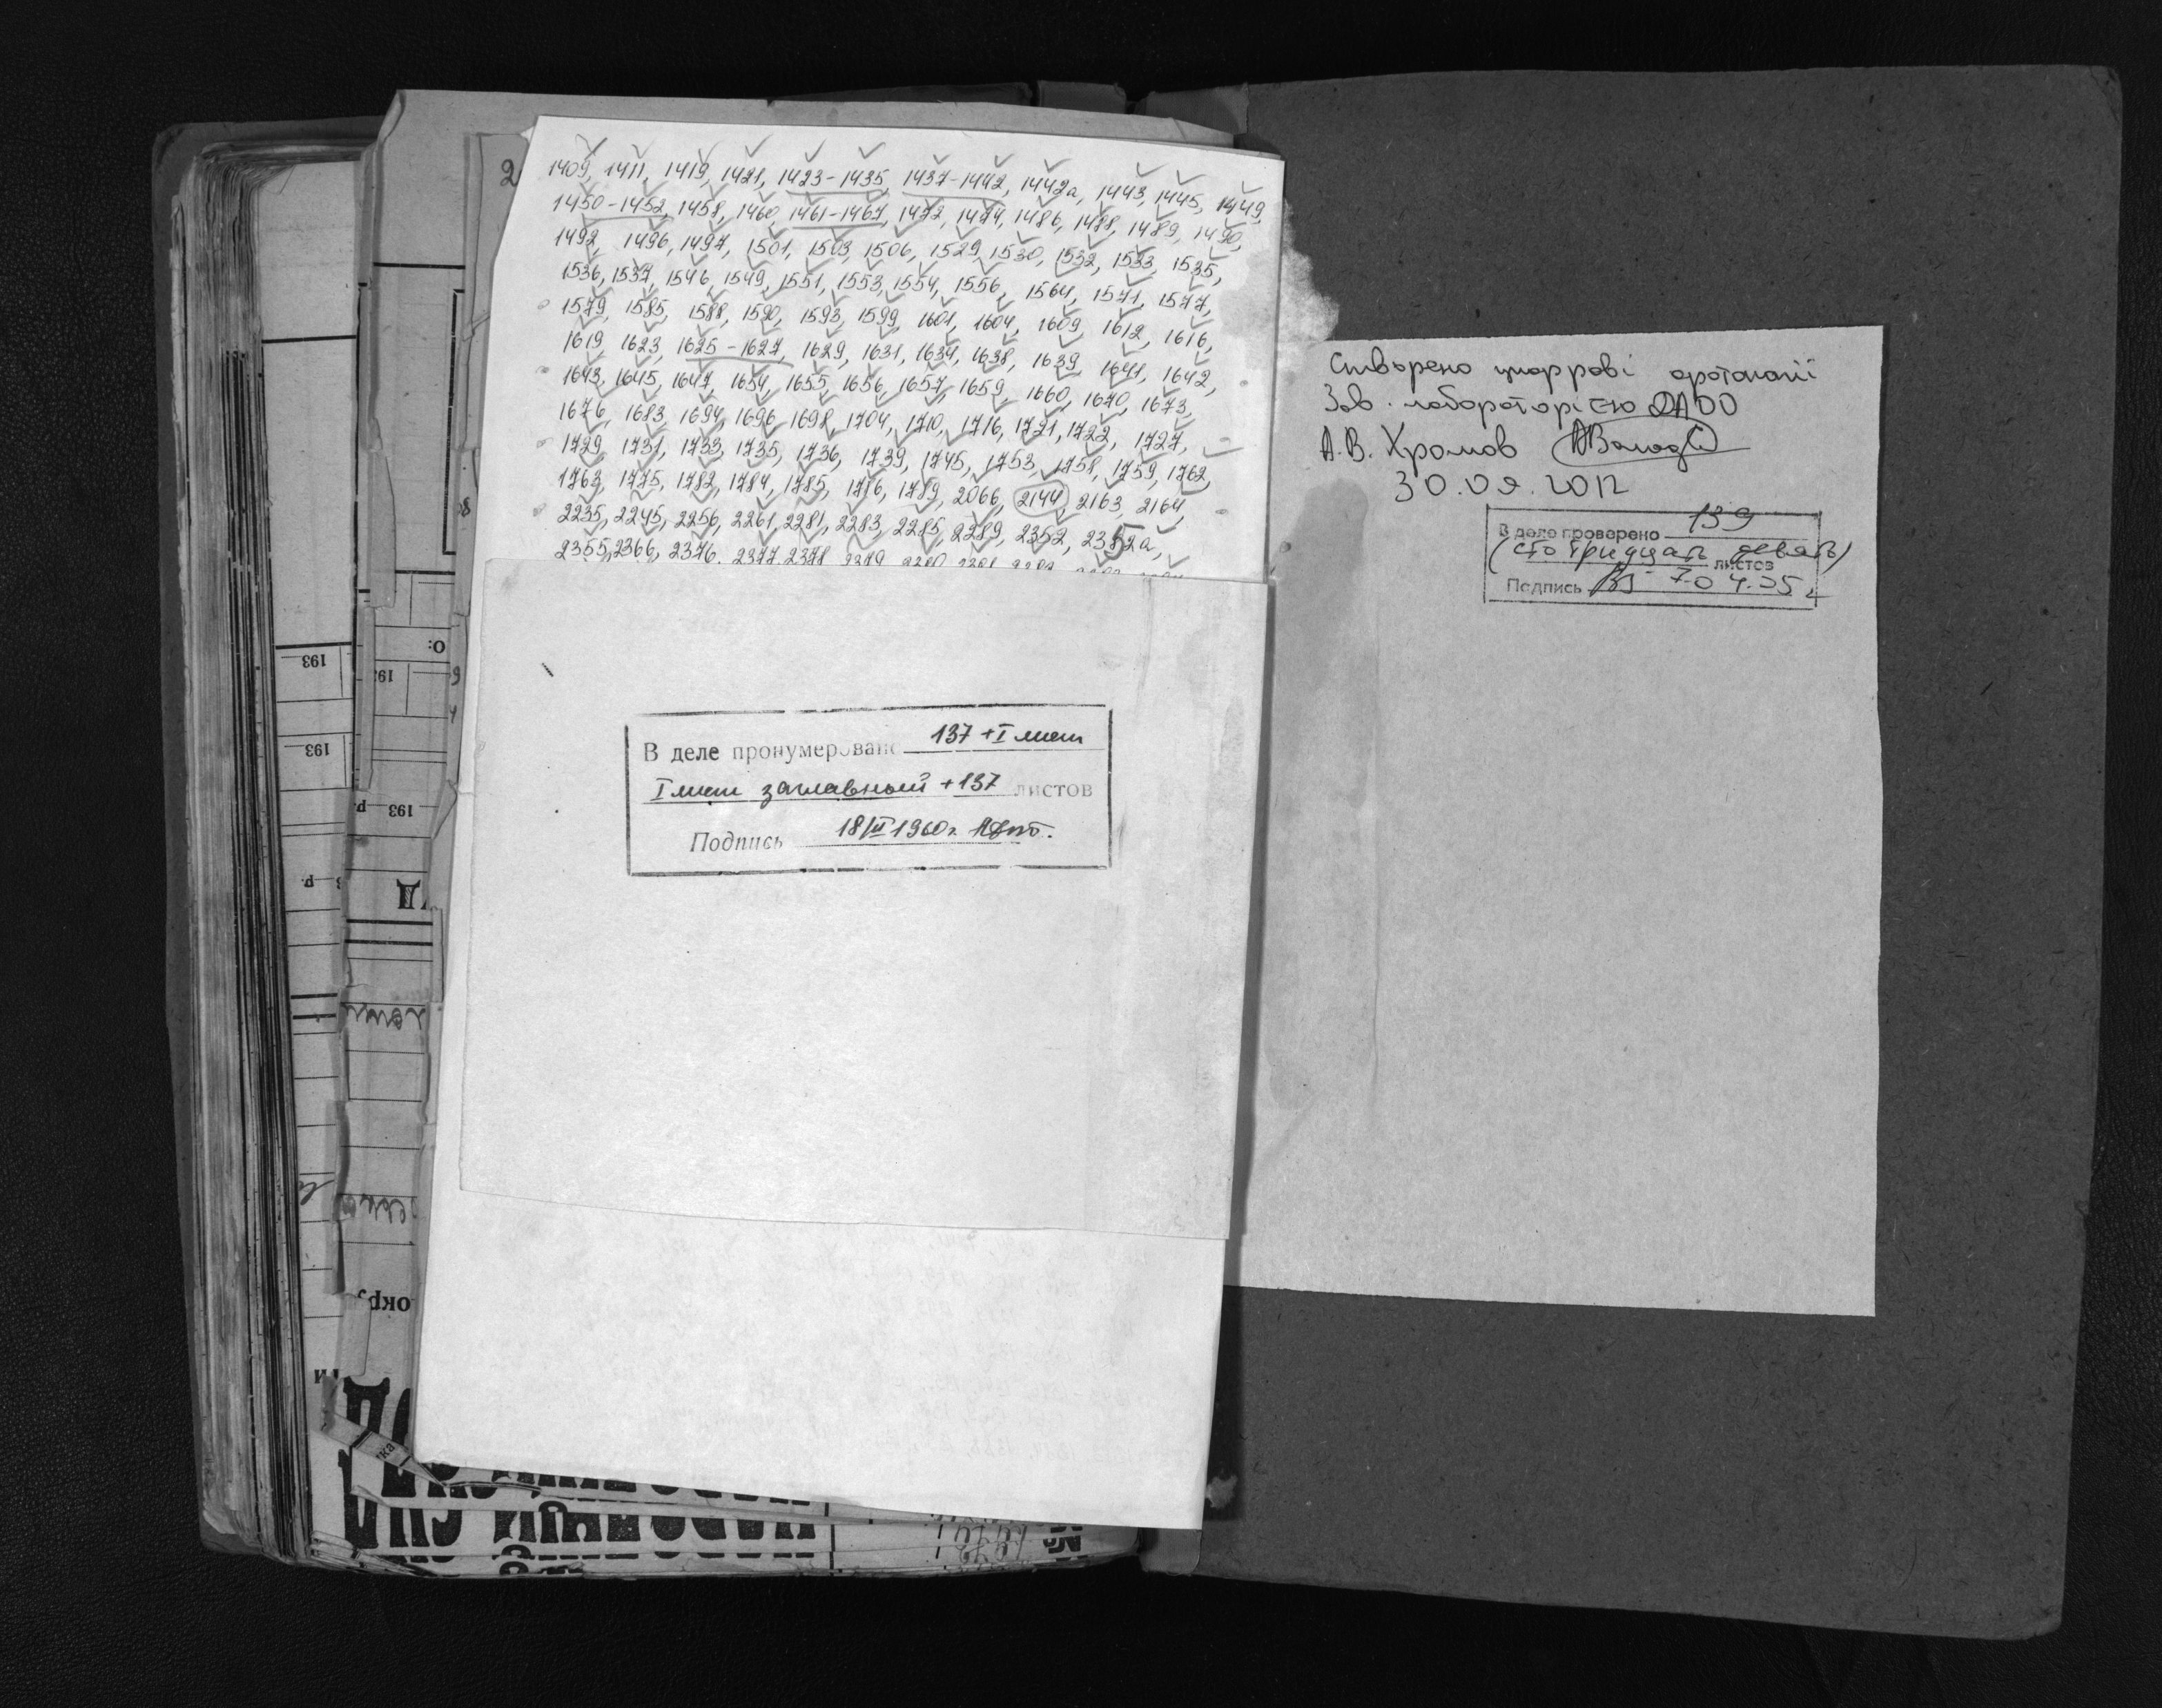 1409, 1411, 1419, 1421, 1423-1435, 1437-1442, 1442а, 1443, 1445, 1449,
1450-1452, 1458, 1460, 1461-1467, 1472, 1474, 1486, 1488, 1489, 1490,
1492, 1496, 1497, 1501, 1503, 1506, 1529, 1530, 1532, 1533, 1535,
1536, 1537, 1546, 1549, 1551, 1553, 1554, 1556, 1564, 1571, 1577,
1579, 1585, 1588, 1590, 1593, 1599, 1601, 1604, 1609, 1612, 1616,
1619, 1623, 1625-1627, 1629, 1631, 1634, 1638, 1639, 1641, 1642,
1643, 1645, 1647, 1654, 1655, 1656, 1657, 1659, 1660, 1670, 1673,
1676, 1683, 1694, 1696, 1698, 1704, 1710, 1716, 1721, 1722, 1727,
1729, 1731, 1733, 1735, 1736, 1739, 1745, 1753, 1758, 1759, 1762,
1763, 1775, 1782, 1784, 1785, 1789, 2066, 2144, 2163, 2164,
2235, 2245, 2256, 2261, 2281, 2283, 2285, 2289, 2352, 2352а,
2355, 2366, 2376, 2377, 2378
В деле пронумеровано 137 + I лист
I лист заглавный + 137 листов
Подпись 18/II 1960г.
Створено цифрові фотокопії
Зав. лабораторією ДАОО
А.В. Хромов
30.09.2012
В деле проверено 139
(сто тридцать девять)
листов
Подпись
193
193
193
193 р.
О:
Д
окру
ти
ка
НАРОДНИЙ СУД